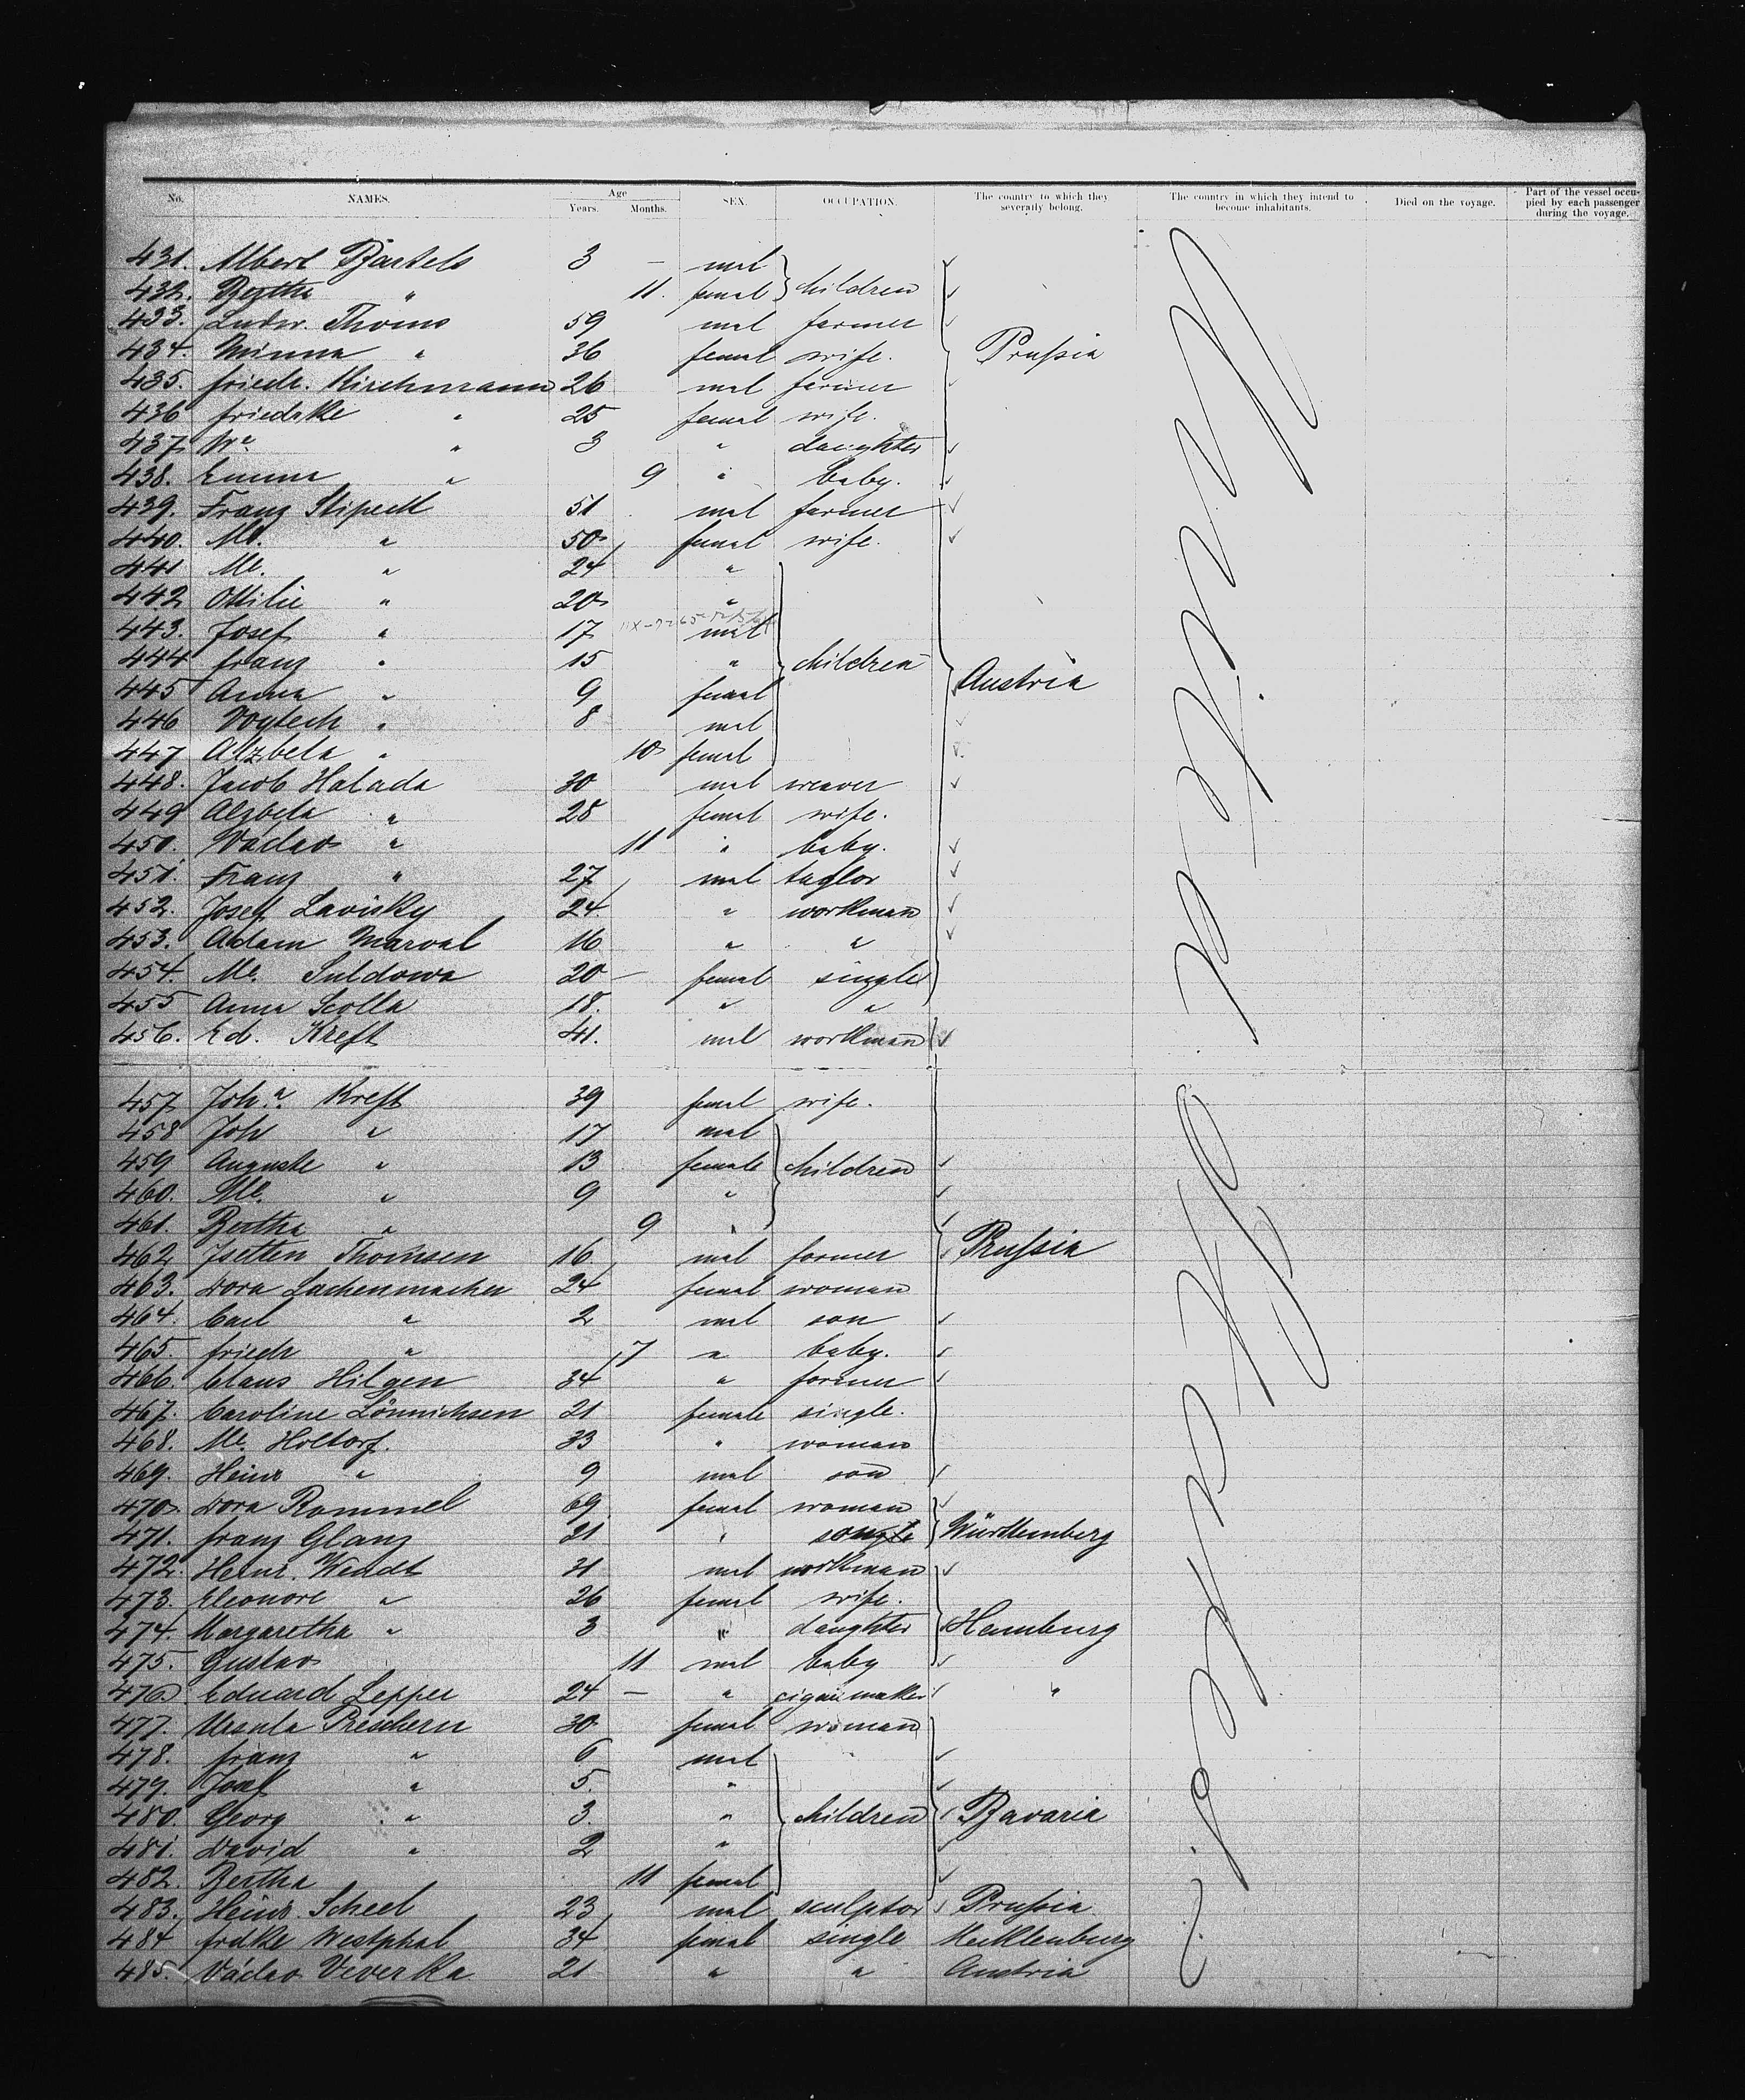 No. NAMES. Age Years. Months. SEX. OCCUPATION. The country to which they severally belong. The country in which they intend to become inhabitants. Died on the voyage. Part of the vessel occupied by each passenger during the voyage.
431. Albert Bartels 3 — mal
432. Bertha " 11. femal children
433. Ludw. Thoms 59 mal farmer
434. Minna " 36 femal wife. Prußia
435. friedr. Hirschmann 26 mal farmer
436 friedrke " 25 femal wife.
437 We " 3 " daughter
438. Emma " 9 " baby.
439. Franz Stipeck 51 mal farmer
440. Me. " 50 femal wife.
441 Me. " 24 "
442 Ottilie " 20 "
443. Josef " 17 mal
444 franz " 15 " children
445 Anna " 9 femal Austria
446 Voytech " 8 mal
447 Alzbeta " 10 femal
448. Jacob Halada 30 mal weaver
449 Alzbeta " 28 femal wife.
450. Vaclav " 11 " baby.
451. Franz " 27 mal taylor
452. Josef Lavisky 24 " workman
453. Adam Marval 16 " "
454. Me. Suldowa 20 — femal single
455 Anna Scolla 18. " "
456. Ed. Kreft 41. mal workman
457 Joha. Kreft 39 femal wife.
458 Joh " 17 mal
459 Auguste " 13 female children
460. Me. " 9 "
461. Bertha " 9 "
462 Jsetten Thomsen 16 mal farmer Prußia
463. Dora Lachenmacher 24 femal woman
464. Carl " 2 mal son
465. friedr " 7 " baby.
466. Claus Hilgen 34 " farmer
467. Caroline Lönnichsen 21 female single.
468. Me. Holtorf. 33 " woman
469. Heinr " 9 mal son
470. Dora Rommel 69 femal woman
471. franz Glanz 21 " Württemberg
472. Heinr. Wendt 31 mal workman
473. Eleonore " 26 femal wife.
474 Margaretha " 3 " daughter Hamburg
475. Gustav 11 mal baby
476. Eduard Lepper 24 — " cigarmaker "
477. Ursula Preschern 30 femal woman
478. franz " 6 mal
479. Josef " 5. "
480. Georg " 3. " children Bavaria
481. David " 2 "
482. Bertha 11 femal
483. Heinr. Scheel 23 mal sculptor Prußia
484 frdke Westphal 34 femal single Mecklenburg
485. Václav Veverka 21 " " Austria